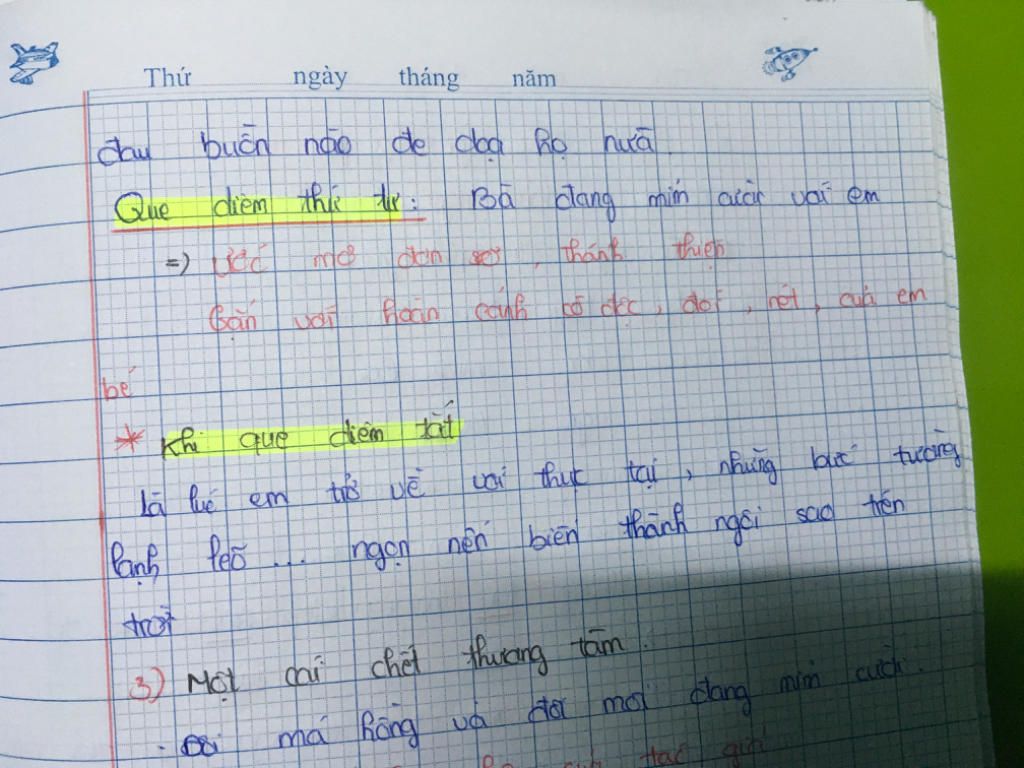 Thứ ngày tháng năm
đau buồn nào đe doạ họ nữa
Que diêm thứ tư: Bà đang mỉm cười với em
=) Ước mơ đơn sơ, thánh thiện
Gắn với hoàn cảnh cô độc, đói, rét, của em
bé
* Khi que diêm tắt
Là lúc em trở về với thực tại, những bức tường
lạnh lẽo... ngọn nến biến thành ngôi sao trên
trời
3) Một cái chết thương tâm.
. đôi má hồng và đôi môi đang mỉm cười.
tác giả